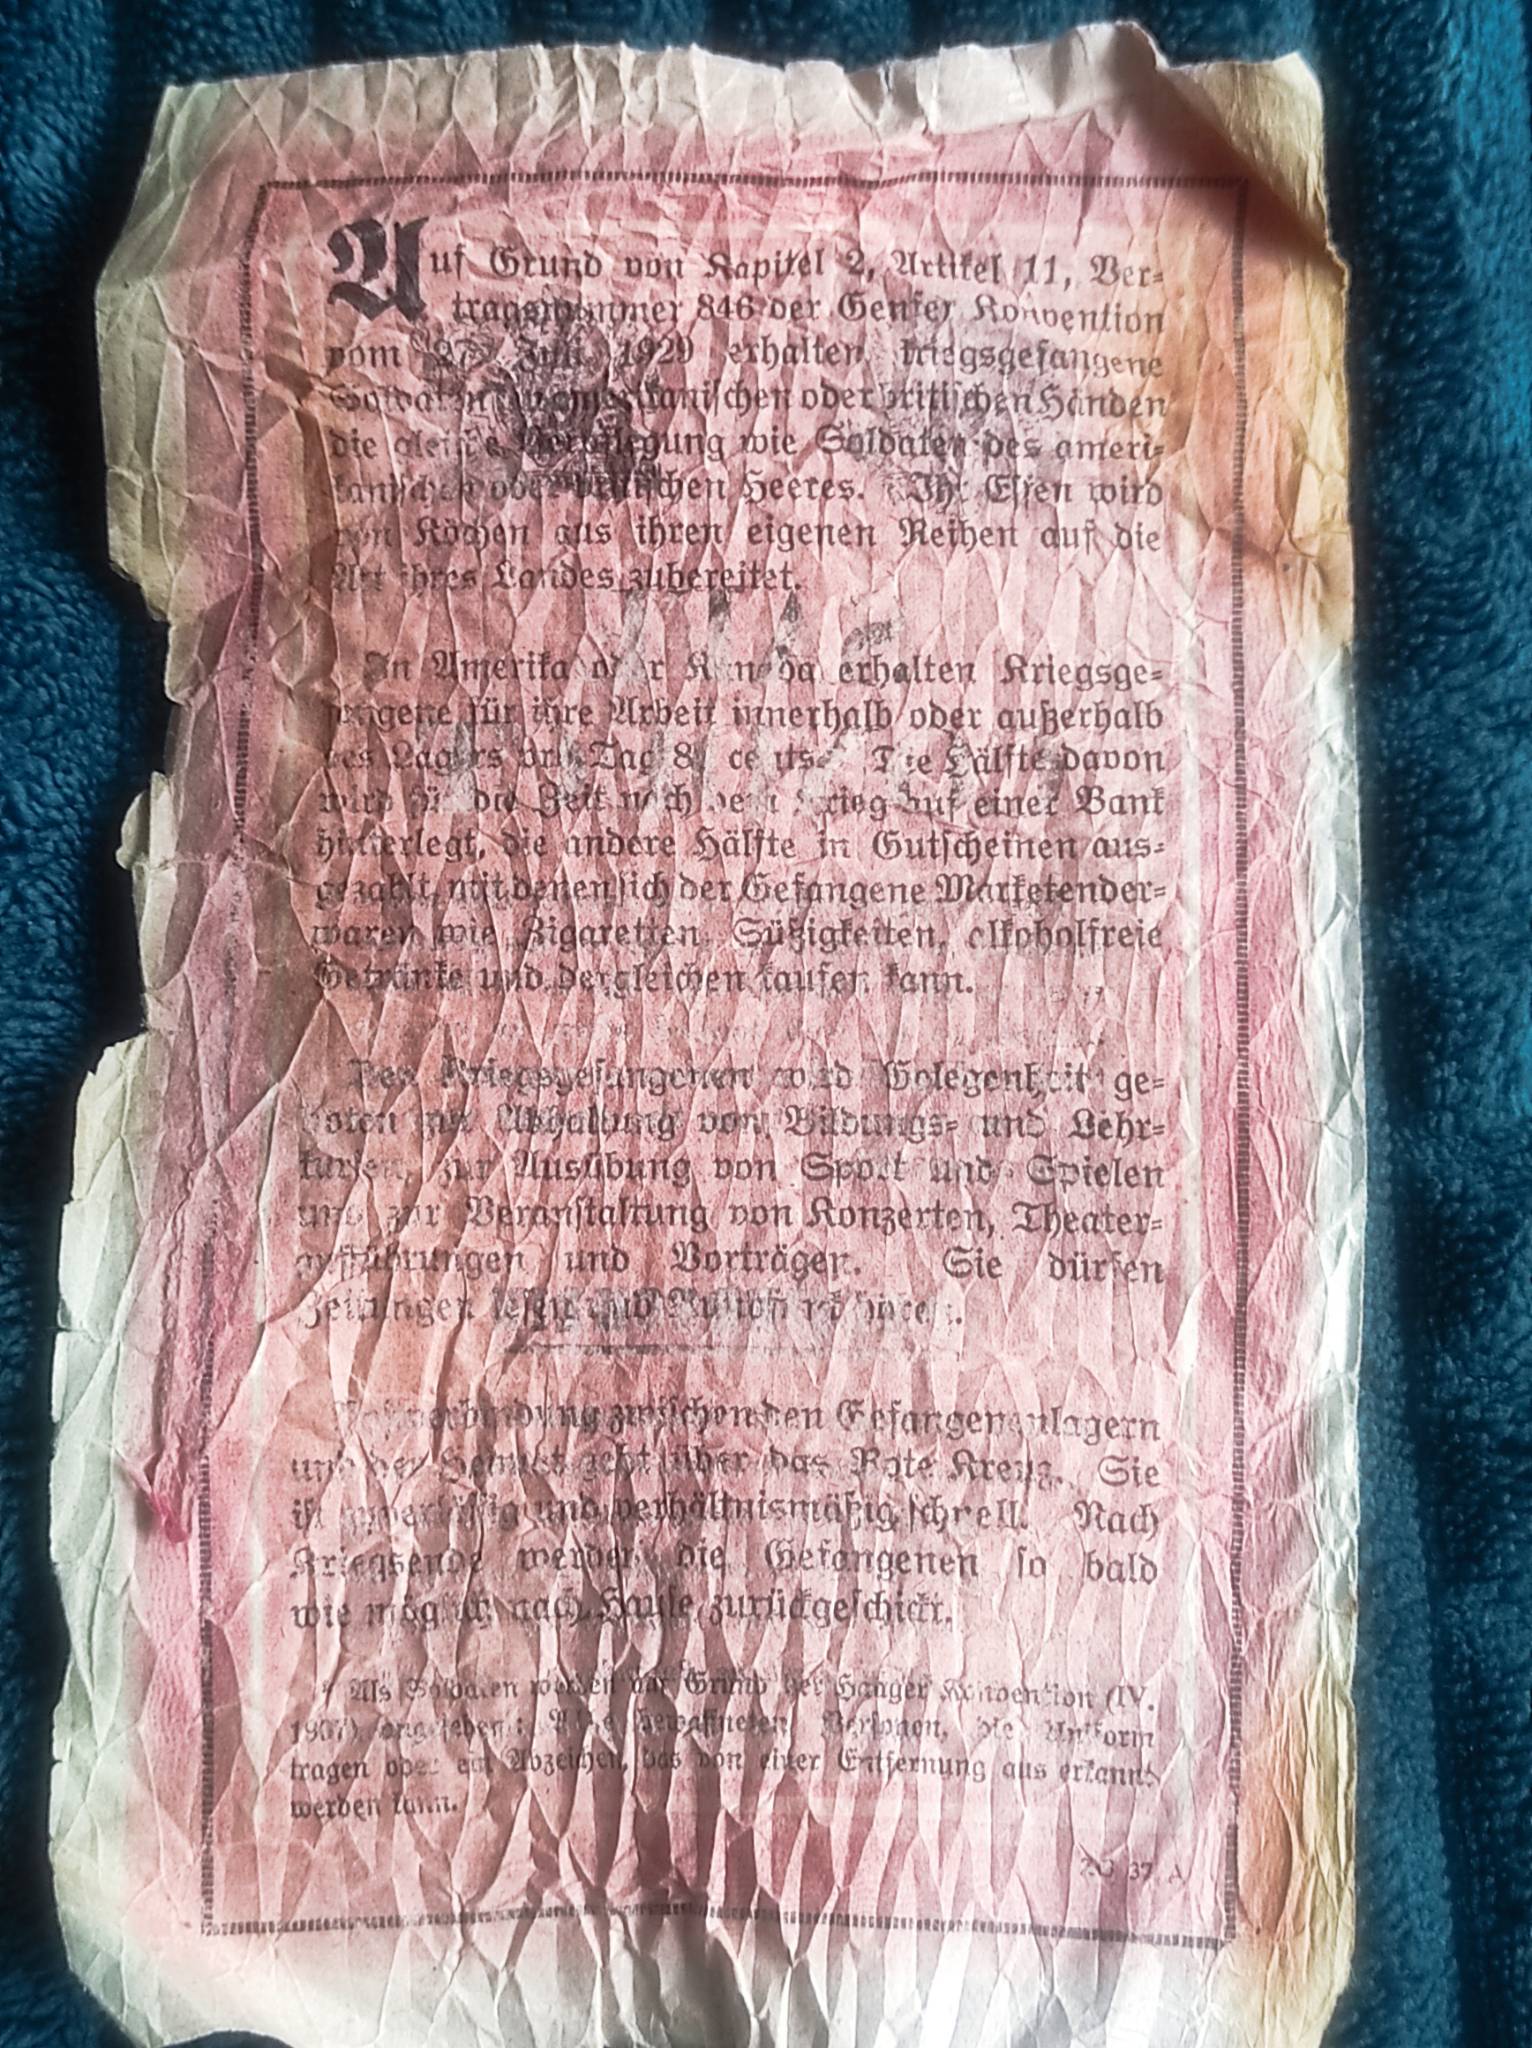 Auf Grund von Kapitel 2, Artikel 11, Ver-
tragsnummer 846 der Genfer Konvention
vom 27. Juli 1929 erhalten kriegsgefangene
Soldaten in amerikanischen oder britischen Händen
die gleiche Verpflegung wie Soldaten des ameri-
kanischen oder britischen Heeres. Ihr Essen wird
von Köchen aus ihren eigenen Reihen auf die
Art ihres Landes zubereitet.
In Amerika oder Kanada erhalten Kriegsge-
fangene für ihre Arbeit innerhalb oder außerhalb
des Lagers pro Tag cents. Die Hälfte davon
wird für die Zeit nach dem Krieg auf einer Bank
hinterlegt, die andere Hälfte in Gutscheinen aus-
gezahlt, mit denen sich der Gefangene Marketender-
waren wie Zigaretten, Süßigkeiten, alkoholfreie
Getränke und dergleichen kaufen kann.
Den Kriegsgefangenen wird Gelegenheit ge-
boten zur Abhaltung von Bildungs- und Lehr-
kursen, zur Ausübung von Sport und Spielen
und zur Veranstaltung von Konzerten, Theater-
aufführungen und Vorträgen. Sie dürfen
Zeitungen lesen und hören.
Postverbindung zwischen den Gefangenenlagern
und der Heimat geht über das Rote Kreuz. Sie
ist zuverlässig und verhältnismäßig schnell. Nach
Kriegsende werden die Gefangenen so bald
wie möglich nach Hause zurückgeschickt.
* Als Soldaten werden auf Grund der Haager Konvention (IV.
1907) angesehen: Alle bewaffneten Personen, die Uniform
tragen oder ein Abzeichen, das von einer Entfernung aus erkannt
werden kann.
ZG 37 A